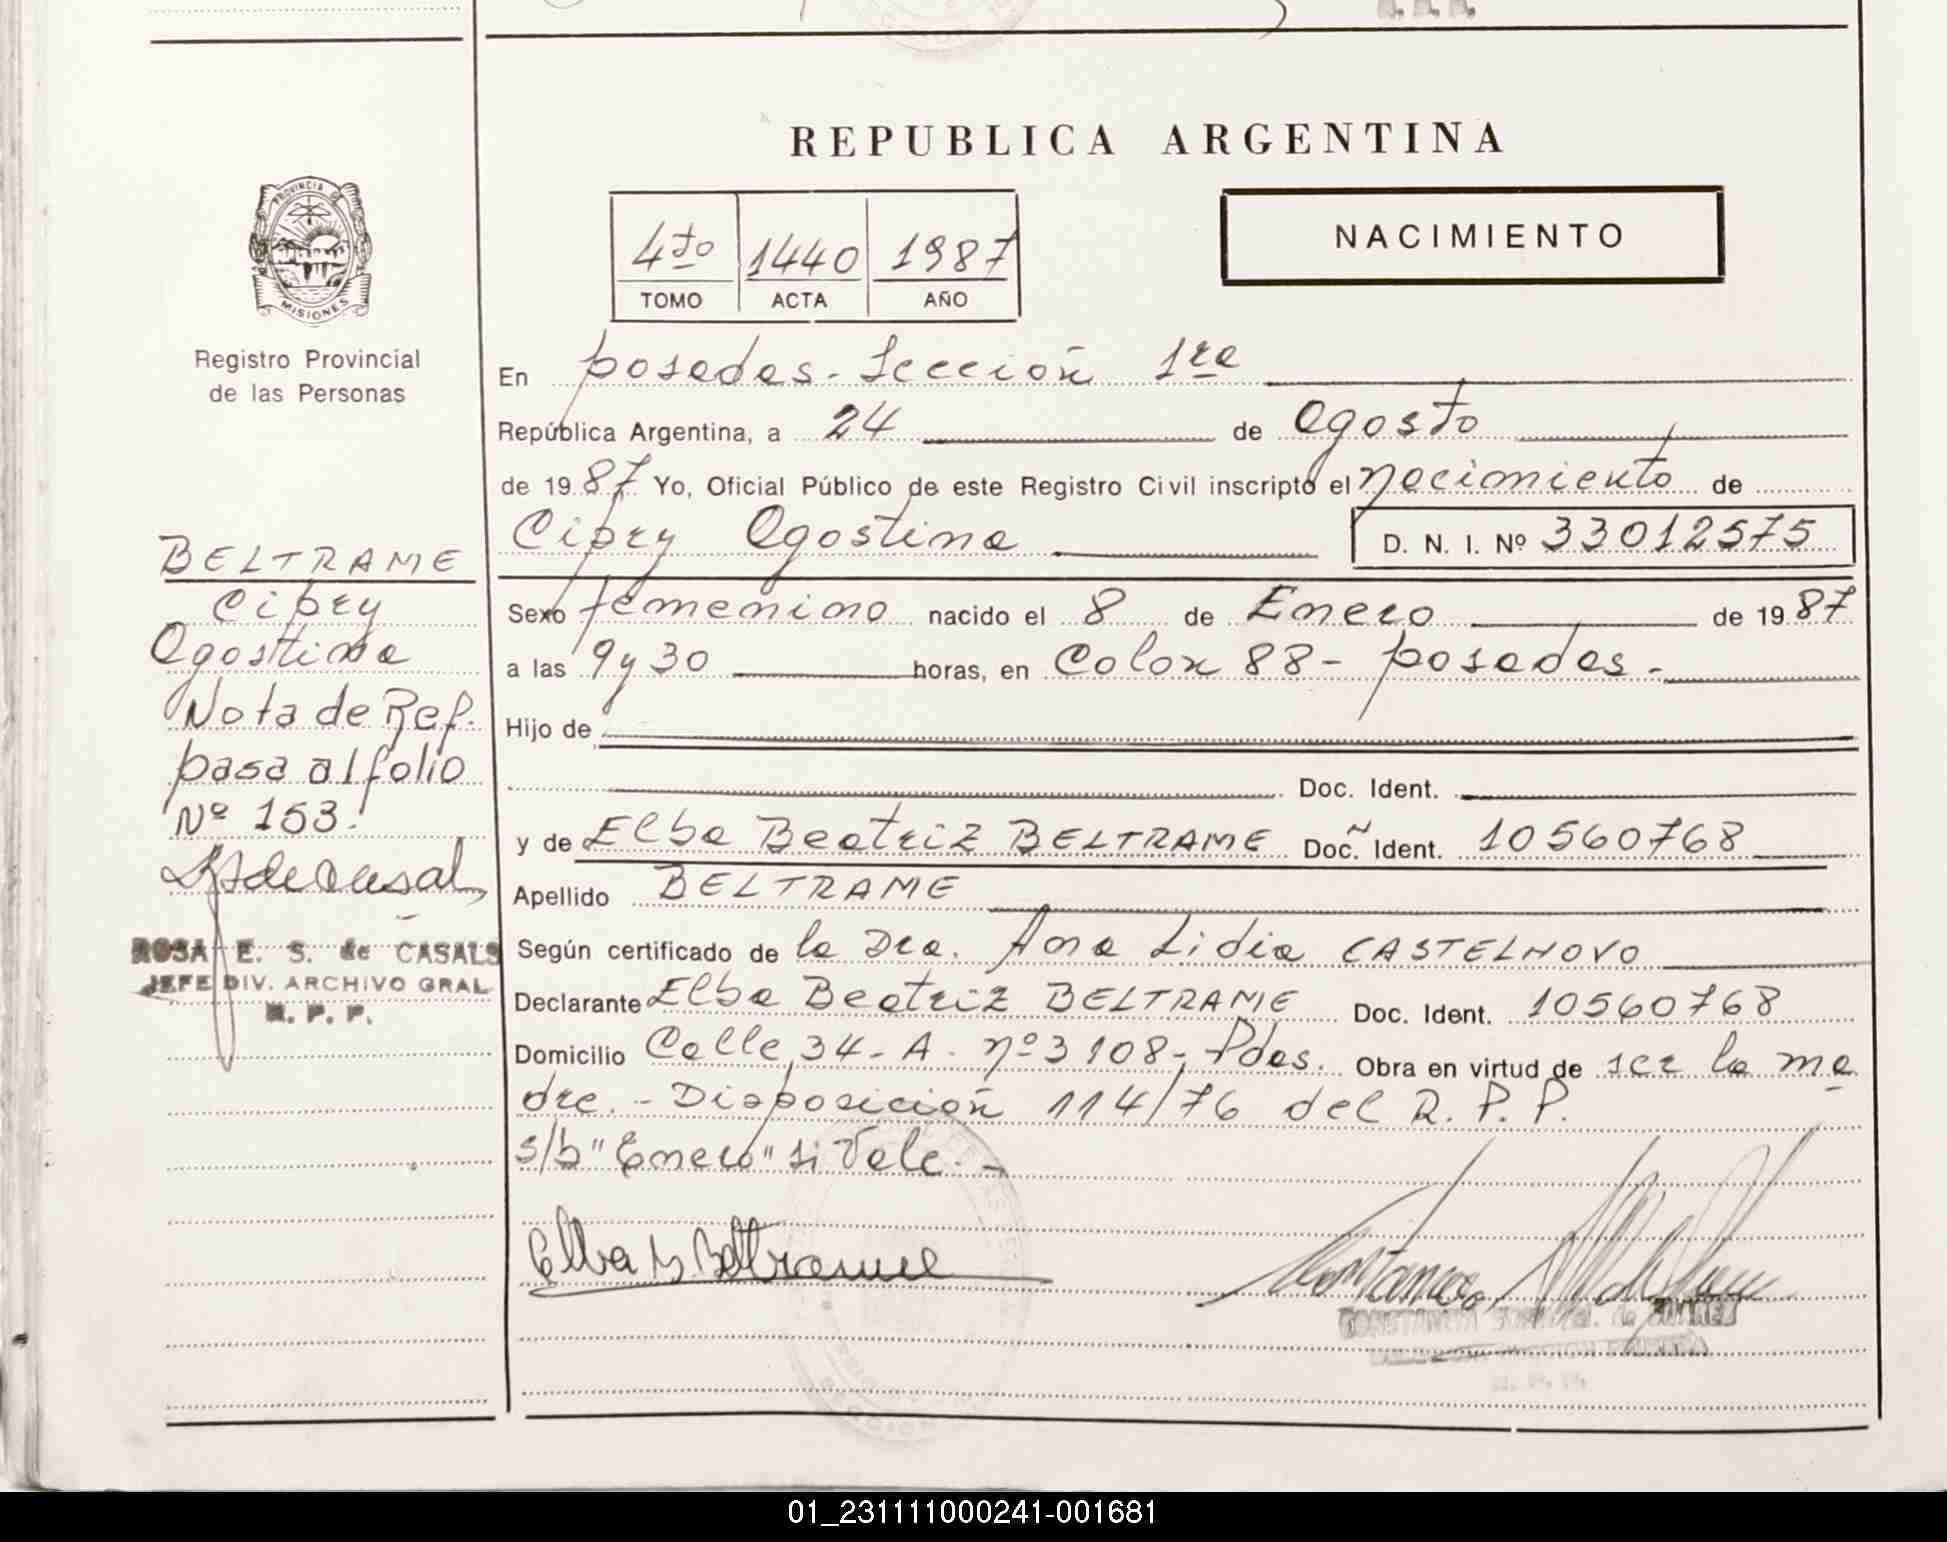 REPUBLICA ARGENTINA
PROVINCIA DE
MISIONES
Registro Provincial
de las Personas
4to 1440 1987
TOMO ACTA AÑO
NACIMIENTO
En posadas - Sección 1ra
República Argentina, a 24 de Agosto
de 1987 Yo, Oficial Público de este Registro Civil inscripto el nacimiento de
Cipry Agostina D. N. I. Nº 33012575
Sexo femenino nacido el 8 de Enero de 1987
a las 9 y 30 horas, en Colon 88 - posadas -
Hijo de
Doc. Ident.
y de Elba Beatriz BELTRAME Doc. Ident. 10560768
Apellido BELTRAME
Según certificado de la Dra. Ana Lidia CASTELNOVO
Declarante Elba Beatriz BELTRAME Doc. Ident. 10560768
Domicilio Calle 34 - A - nº 3108 - Pdas. Obra en virtud de ser la ma
dre. - Disposición 114/76 del R. P. P.
s/b "Enero" si Vale. -
Elba B Beltrame
BELTRAME
Cipry
Agostina
Nota de Ref.
pasa al folio
Nº 153.
ROSA E. S. de CASALS
JEFE DIV. ARCHIVO GRAL
R. P. P.
01_231111000241-001681